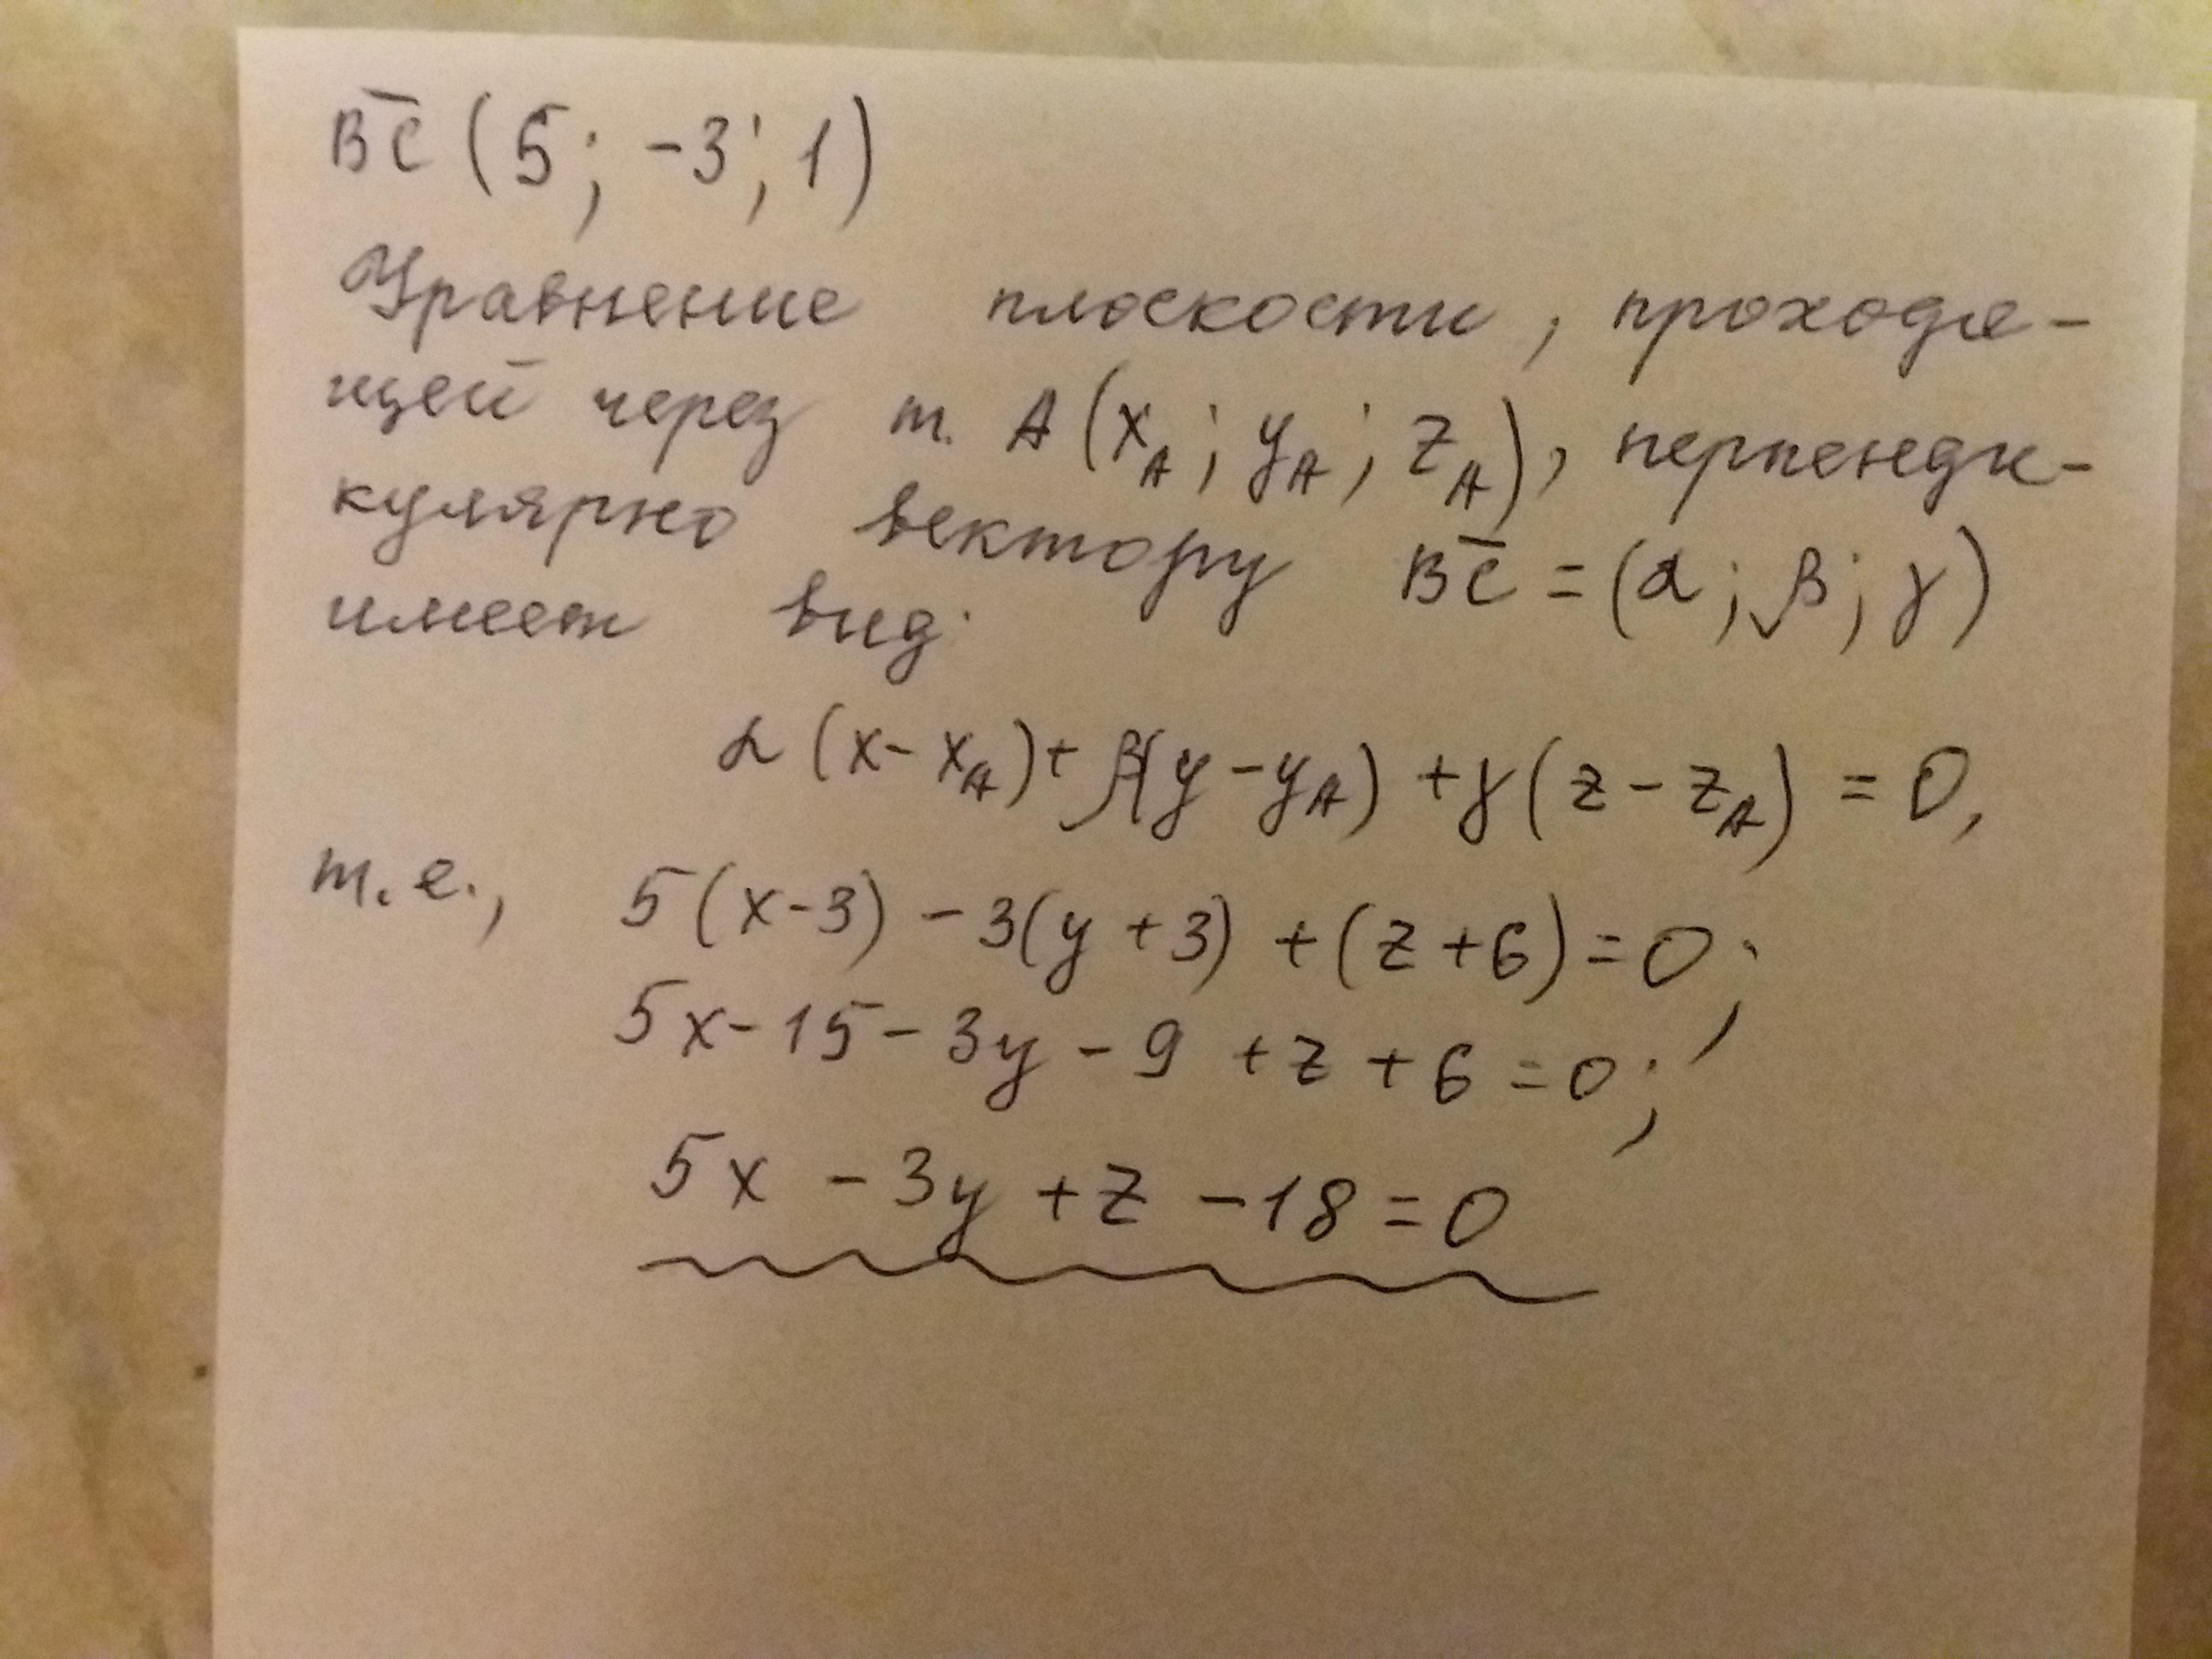 B̄C̄ (5; -3; 1)
Уравнение плоскости, проходя-
щей через т. A(x_A; y_A; z_A), перпенди-
кулярно вектору B̄C̄ = (α; β; γ)
имеет вид:
α(x - x_A) + β(y - y_A) + γ(z - z_A) = 0,
т.е., 5(x-3) - 3(y+3) + (z+6) = 0;
5x - 15 - 3y - 9 + z + 6 = 0;
5x - 3y + z - 18 = 0